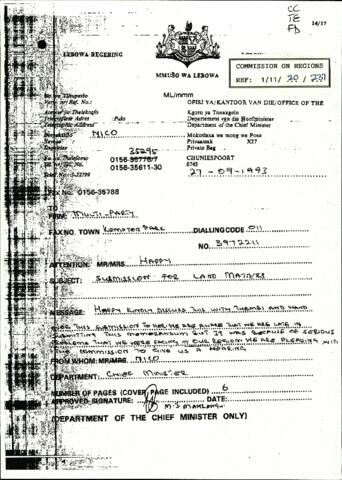 CC
TE
FD
14/17
LEBOWA REGERING
MMUŠO WA LEBOWA
COMMISSION ON REGIONS
REF: 1/11/20/237
ML/mmm
OFISI YA/KANTOOR VAN DIE/OFFICE OF THE
Kgoro ya Tonakgolo
Departement van die Hoofminister
Department of the Chief Minister
NICO
Mokotlana wa mong wa Poso
Privaatsak X27
Private Bag
35295
0156-35776/7
0156-35611-30
CHUNIESPOORT
0745
27-09-1993
FAX NO. 0156-35788
TO
FIRM: MULTI-PARTY
FAX NO. TOWN KEMPTON PARK DIALLING CODE: 011
NO. 3972211
ATTENTION: MR/MRS HAPPY
SUBJECT: SUBMISSION FOR LAND MATTERS
MESSAGE: HAPPY KINDLY DISCUSS THIS WITH THEMBI AND HAND
OVER THIS SUBMISSION TO HER. WE ARE AWARE THAT WE ARE LATE
SUBMITTING THIS MEMORANDUM BUT IT WAS BECAUSE OF SERIOUS
PROBLEMS THAT WE WERE FACING IN OUR REGION. WE ARE PLEADING WITH
THE COMMISSION TO GIVE US A HEARING
FROM WHOM: MR/MRS NICO
DEPARTMENT: CHIEF MINISTER
NUMBER OF PAGES (COVER PAGE INCLUDED) 6
APPROVED SIGNATURE: DATE:
(DEPARTMENT OF THE CHIEF MINISTER ONLY)